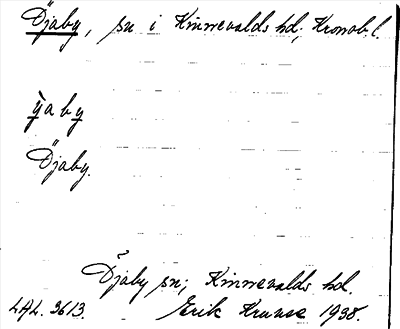 Öjaby, sn i Kinnevalds hd; Kronob. l.
ÿaby
Öjaby.
Öjaby sn; Kinnevalds hd.
LAL. 3613. Erik Krause 1938.